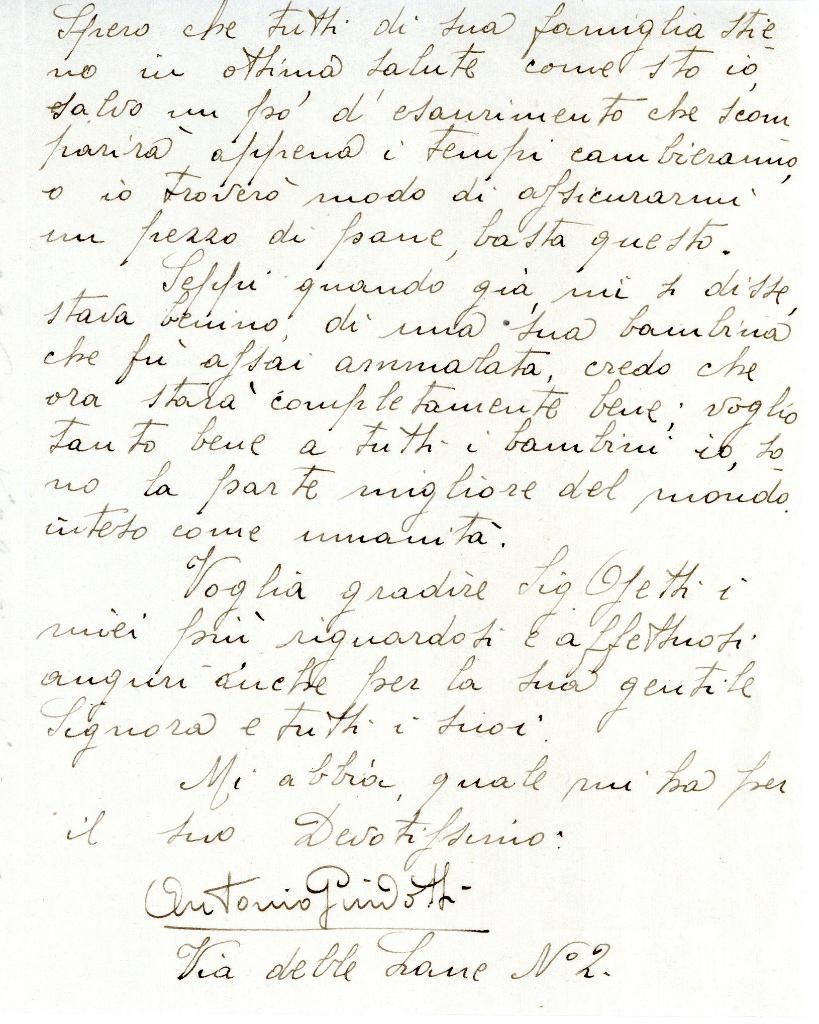 Spero che tutti di sua famiglia stie
no in ottima salute come sto io,
salvo un pò d'esaurimento che scom
parirà appena i tempi cambieranno,
o io troverò modo di assicurarmi
un pezzo di pane, basta questo.
Seppi quando già, mi si disse,
stava benino, di una sua bambina
che fù assai ammalata, credo che
ora starà completamente bene; voglio
tanto bene a tutti i bambini io, so
no la parte migliore del mondo
inteso come umanità.
Voglia gradire Sig Ojetti i
miei più riguardosi e affettuosi
auguri anche per la sua gentile
Signora e tutti i suoi.
Mi abbia, quale mi ha per
il suo Devotissimo:
Antonio Guidotti
Via delle Lane Nº 2.